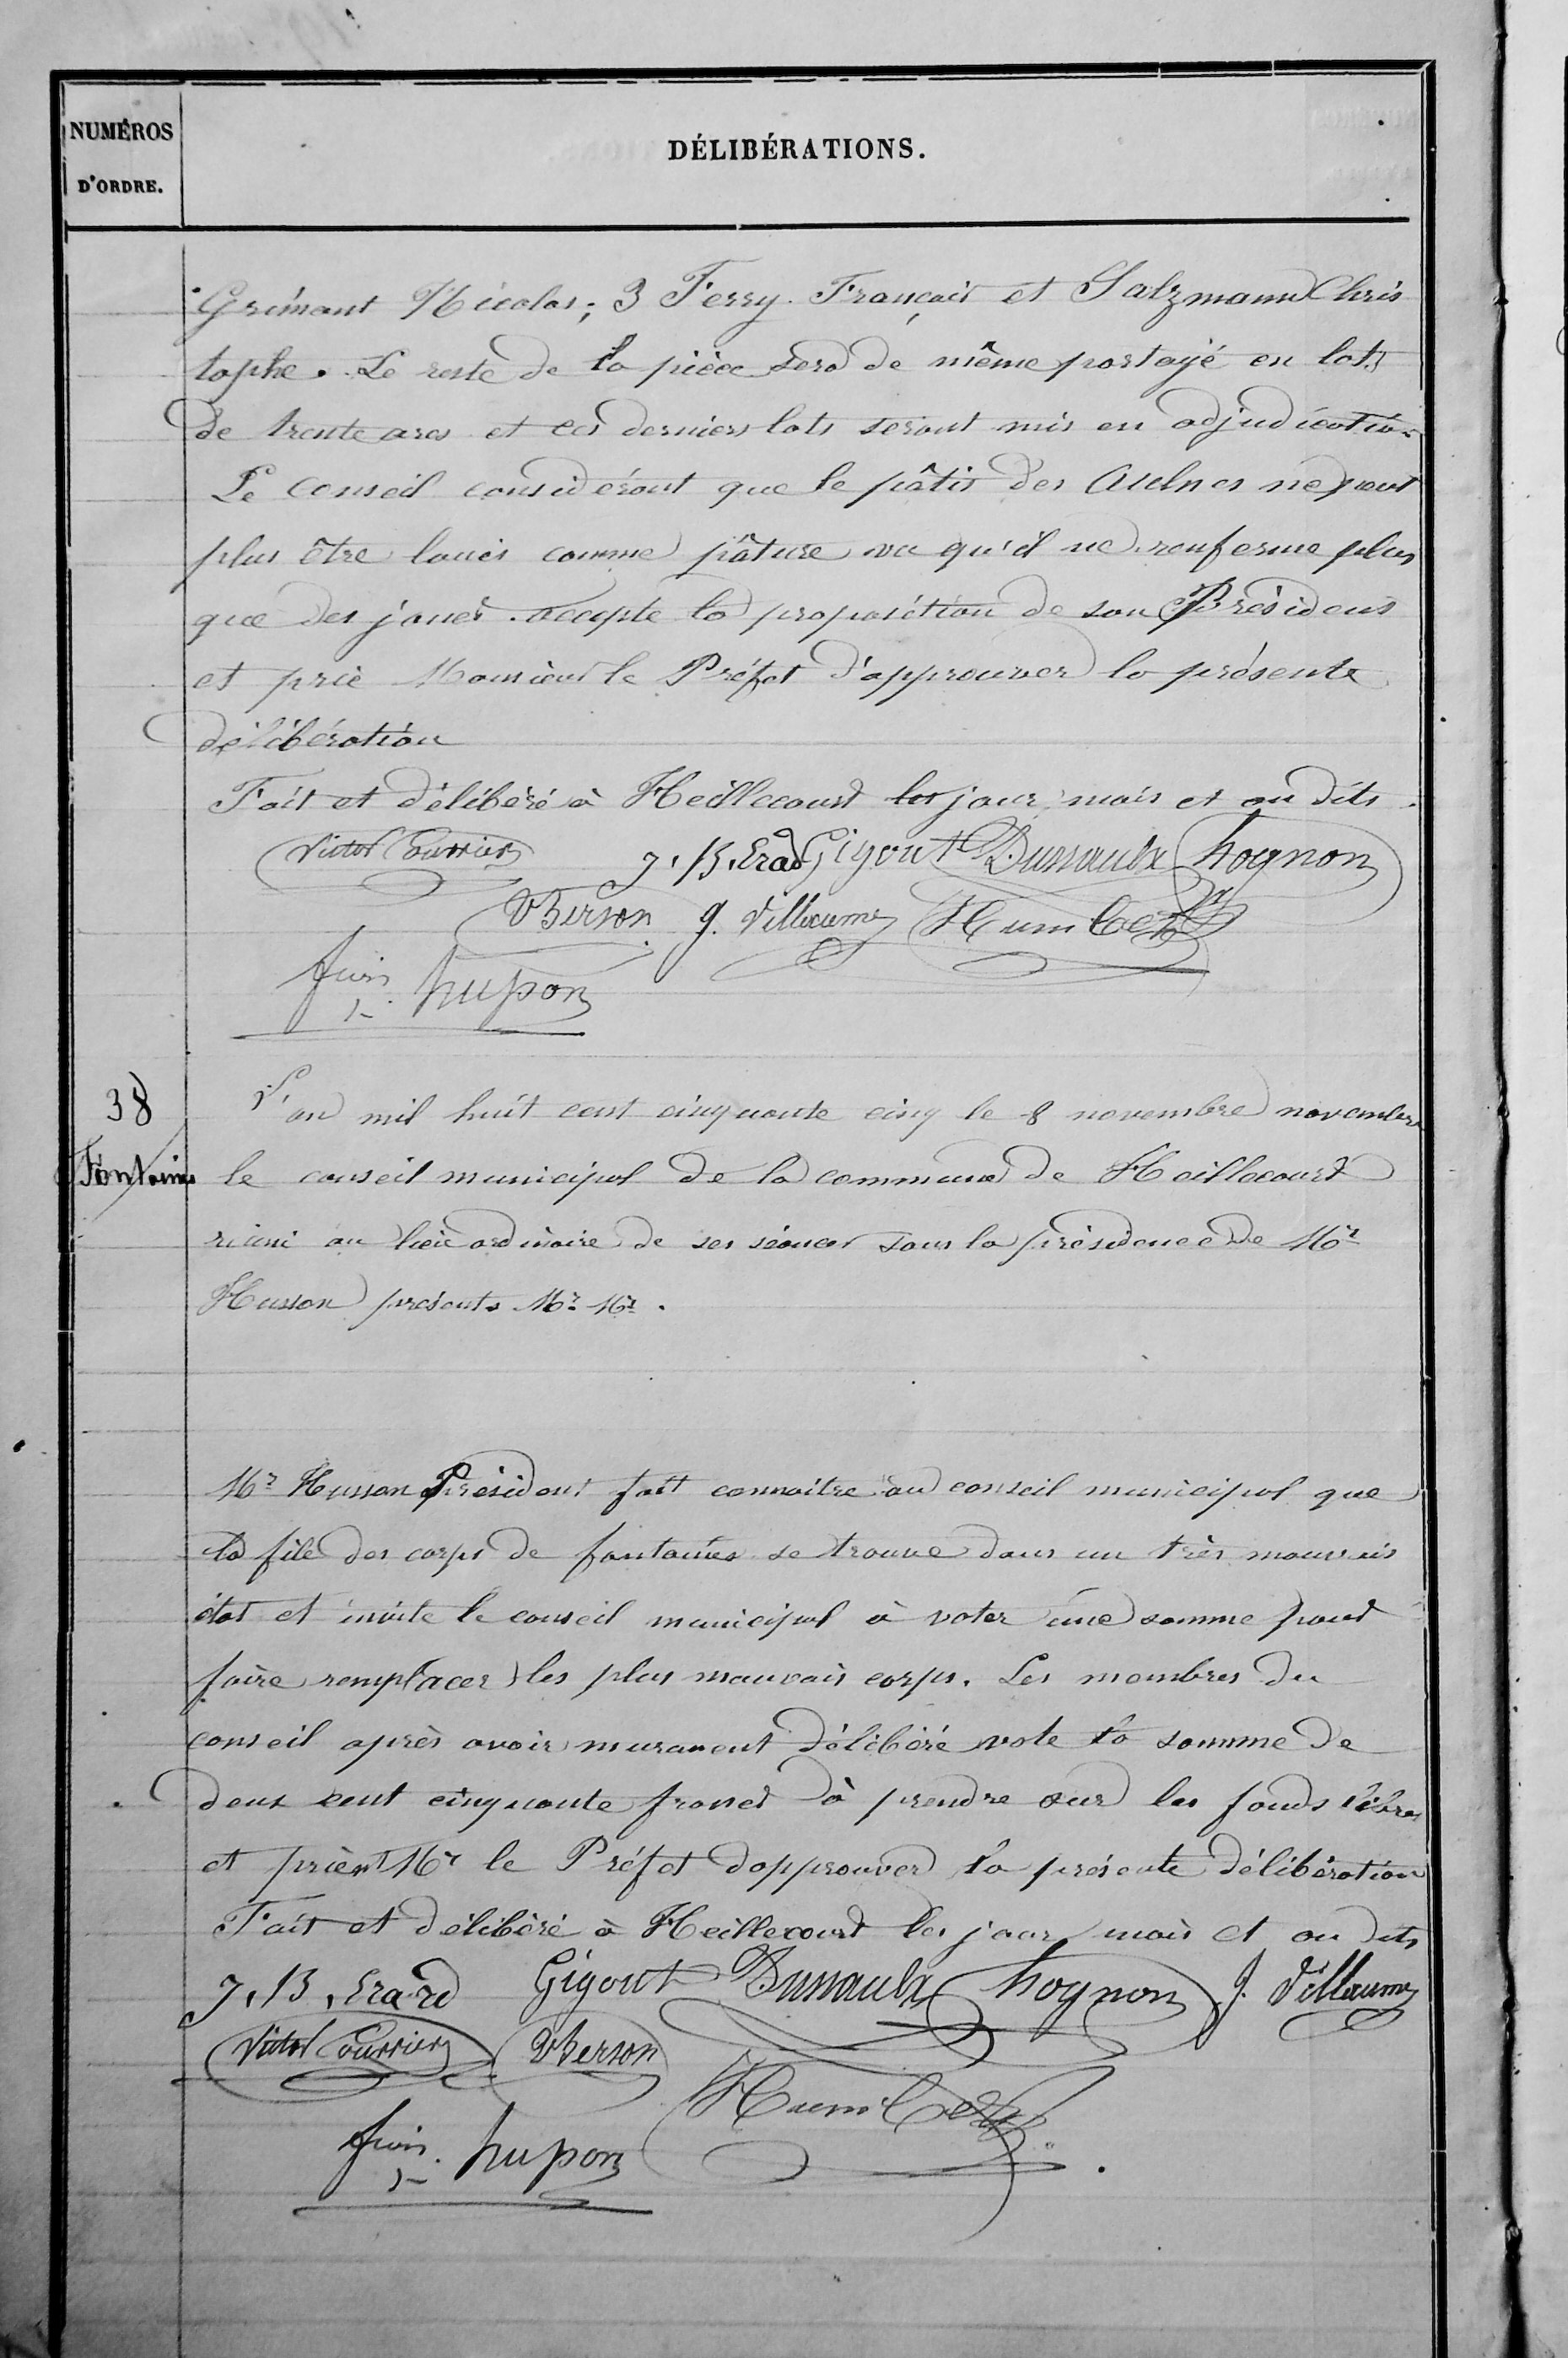 NUMÉROS
D'ORDRE.
DÉLIBÉRATIONS.
Grémant Nicolas; 3 Ferry François et Salzmann Chris
tophe. Le reste de la pièce sera de même partagé en lots
de trente ares et ces derniers lots seront mis en adjudication
Le Conseil considérant que le pâtis des Aulnes ne peut
plus être loués comme pâture vu qu'il ne renferme plus
que des joncs accepte la proposition de son Président
et prie Monsieur le Préfet d'approuver la présente
délibération
Fait et délibéré à Heillecourt les jour mois et an dits.
Victor Courrier J. B. Erard Gigout Dussaulx hognon
VBerson J. Villaume Humbert
husson
38
Fontaines
L'an mil huit cent cinquante cinq le 8 novembre novembre
le conseil municipal de la commune de Heillecourt
réuni au lieu ordinaire de ses séances sous la présidence de Mr
Husson présents Mr. Mr.
Mr Husson Président fait connaître au conseil municipal que
la file des corps de fontaines se trouve dans un très mauvais
état et invite le conseil municipal à voter une somme pour
faire remplacer les plus mauvais corps. Les membres du
conseil après avoir murament délibéré vote la somme de
deux cent cinquante francs à prendre sur les fonds libres
et prient Mr le Préfet dapprouver la présente délibération
Fait et délibéré à Heillecourt les jour mois et an dits
J. B. Erard Gigout Dussaulx hognon J. Villaume
Victor Courrier VBerson
Humbert
husson